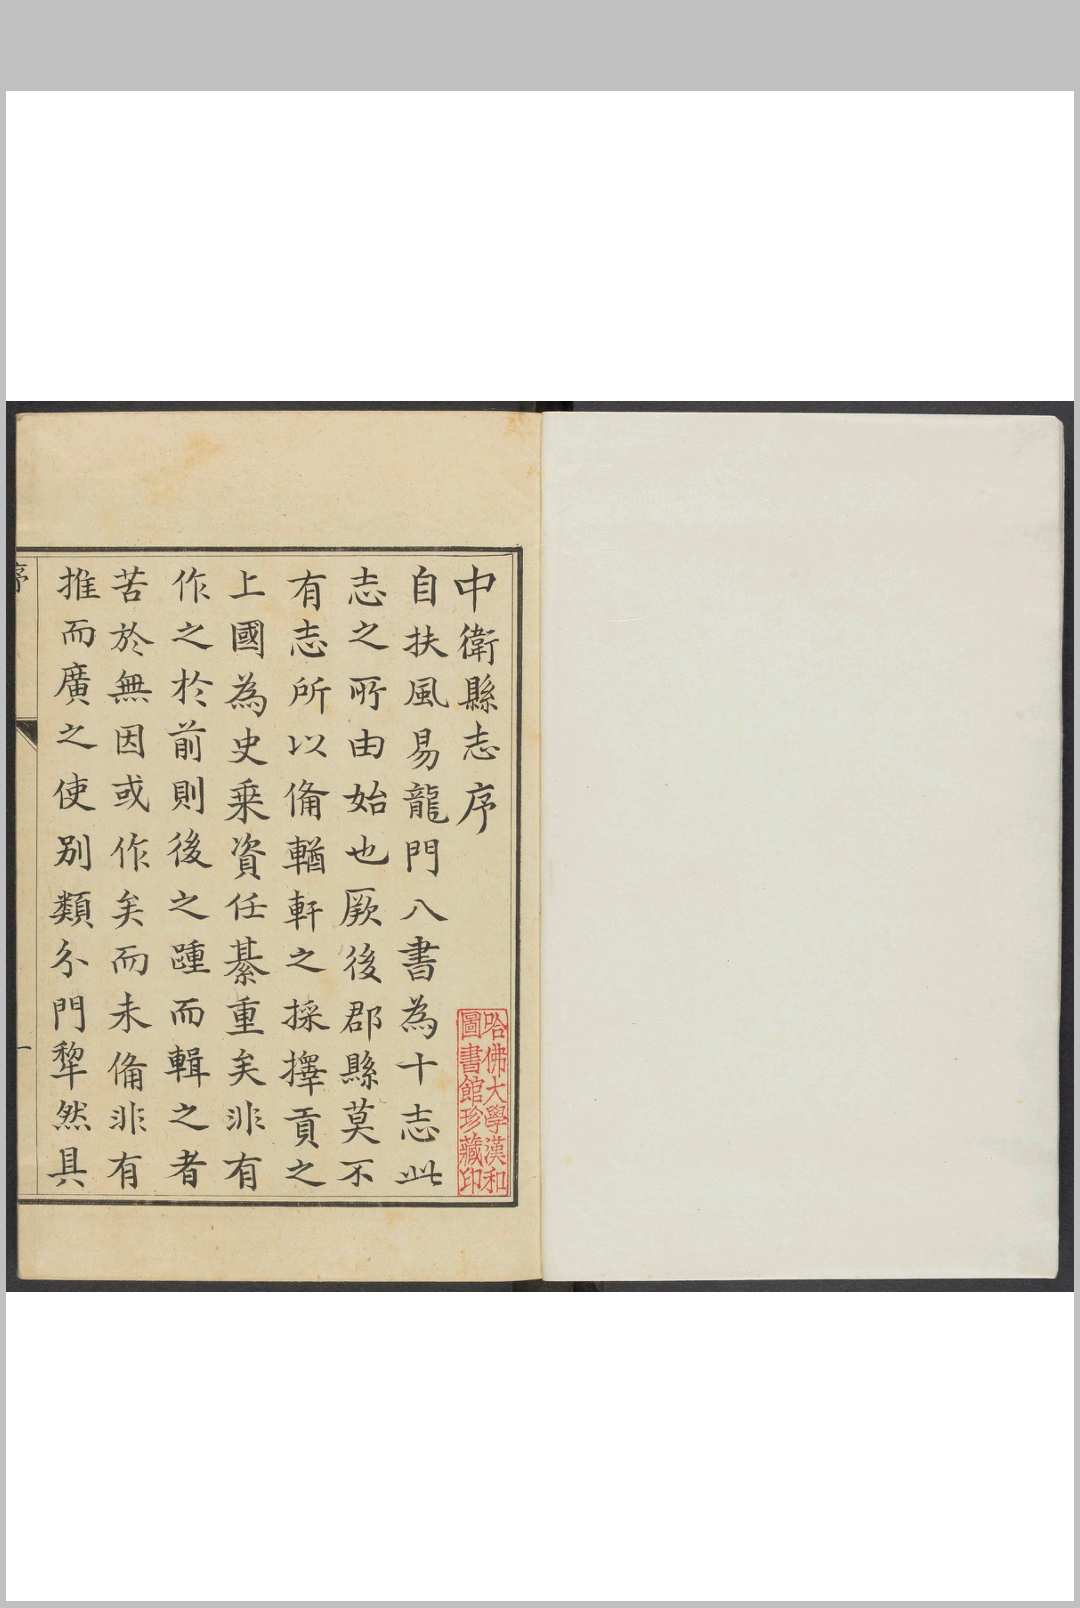 中衛縣志序
自扶風易龍門八書為十志此
志之所由始也厥後郡縣莫不
有志所以俻輶軒之採擇貢之
上國為史乗資任綦重矣非有
作之於前則後之踵而輯之者
苦於無因或作矣而未俻非有
推而廣之使别類分門犂然具
序
一
哈佛大學漢和
圖書館珍藏印